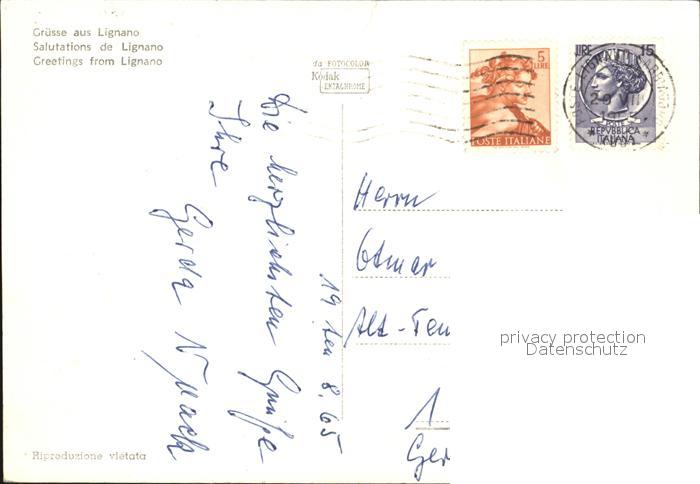 Grüsse aus Lignano
Salutations de Lignano
Greetings from Lignano
da FOTOCOLOR
Kodak
EKTACHROME
5
LIRE
POSTE ITALIANE
LIRE 15
POSTE
REPVBBLICA
ITALIANA
19ten 8.65
Die herzlichsten Grüße
Ihre
Gerda
Herrn
Otmar
Alt-
1
Ger
privacy protection
Datenschutz
Riproduzione vietata